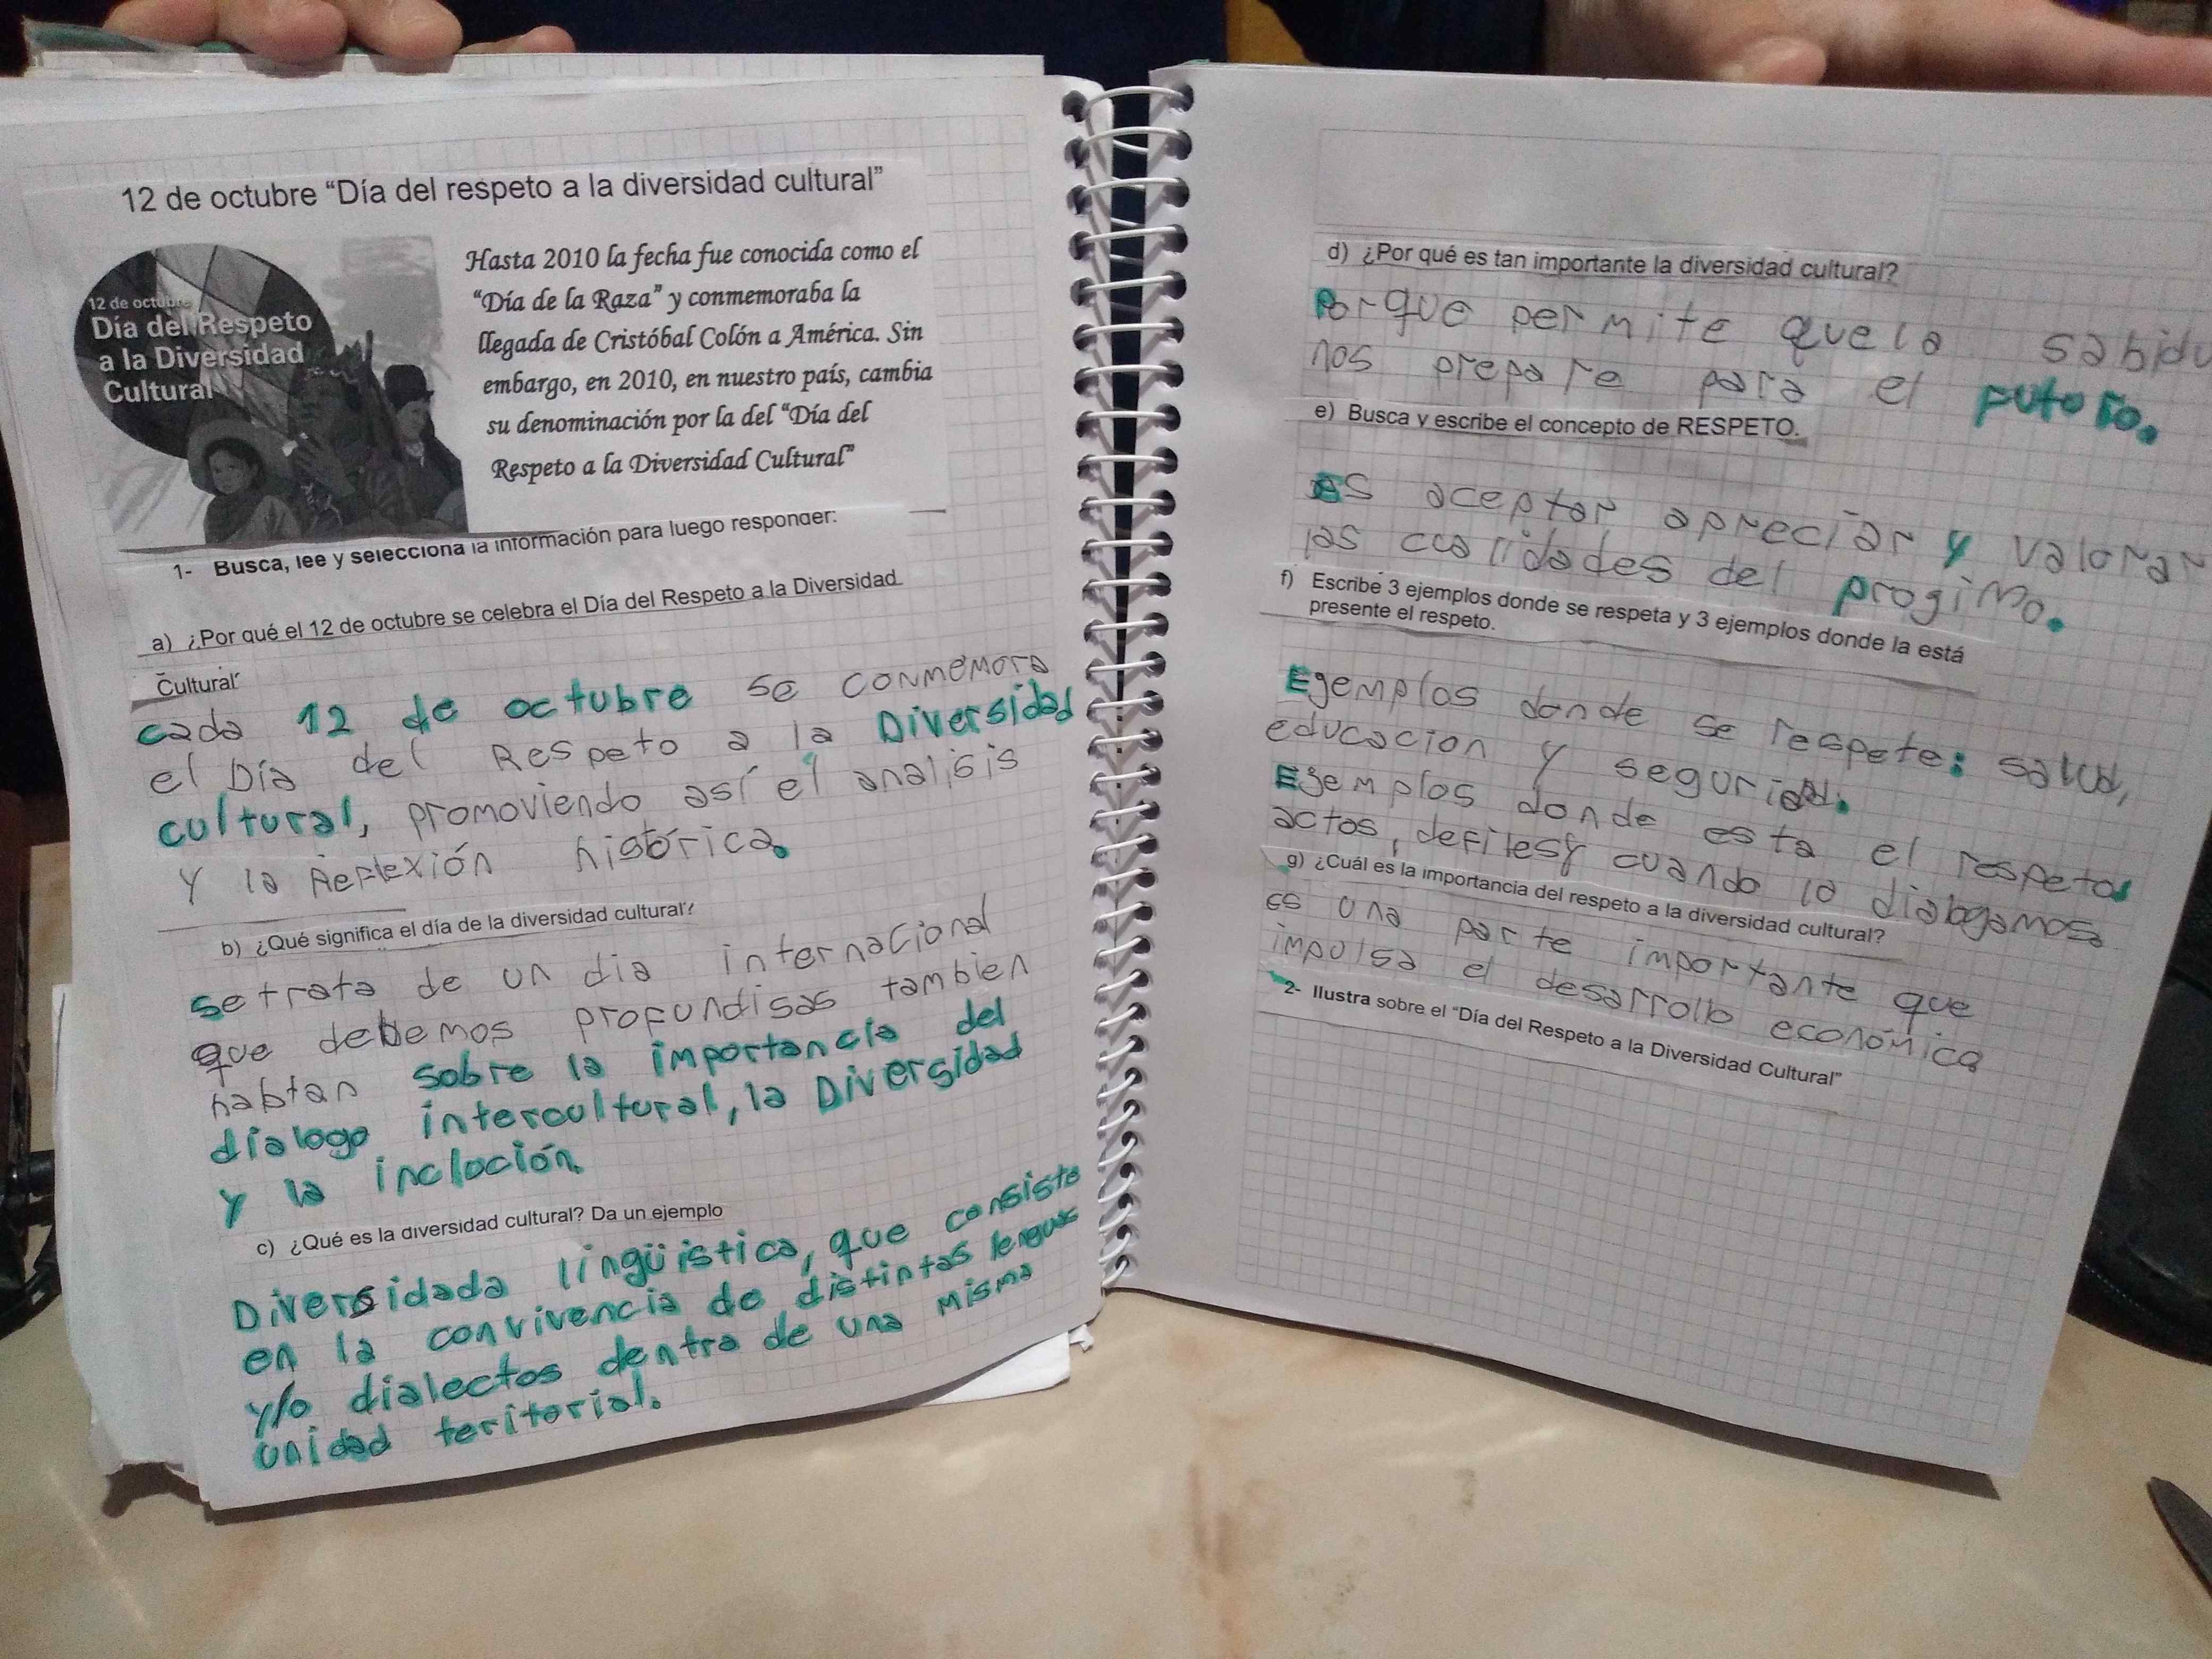 12 de octubre “Día del respeto a la diversidad cultural”
12 de octubre
Día del Respeto
a la Diversidad
Cultural
Hasta 2010 la fecha fue conocida como el
“Día de la Raza” y conmemoraba la
llegada de Cristóbal Colón a América. Sin
embargo, en 2010, en nuestro país, cambia
su denominación por la del “Día del
Respeto a la Diversidad Cultural”
1- Busca, lee y selecciona la información para luego responder:
a) ¿Por qué el 12 de octubre se celebra el Día del Respeto a la Diversidad
Cultural
cada 12 de octubre se conmemora
el Día del Respeto a la Diversidad
cultural, promoviendo así el analisis
y la Reflexión histórica.
b) ¿Qué significa el día de la diversidad cultural?
se trata de un dia internacional
que debemos profundisas tambien
habtan sobre la importancia del
dialogo intercultural, la Diversidad
y la incloción.
c) ¿Qué es la diversidad cultural? Da un ejemplo
Diversidada lingüistica, que consiste
en la convivencia de distintas lenguas
y/o dialectos dentro de una misma
unidad teritorial.
d) ¿Por qué es tan importante la diversidad cultural?
Porque permite que la sabidu
nos prepare para el futoro.
e) Busca y escribe el concepto de RESPETO.
es aceptar apreciar y valorar
las cualidades del progimo.
f) Escribe 3 ejemplos donde se respeta y 3 ejemplos donde la está
presente el respeto.
Egemplos donde se respete: salud,
educacion y seguridad.
Egemplos donde esta el respeto
actos, defiles y cuando lo dialogamos
g) ¿Cuál es la importancia del respeto a la diversidad cultural?
es una parte importante que
impulsa el desarrollo económica
2- Ilustra sobre el “Día del Respeto a la Diversidad Cultural”